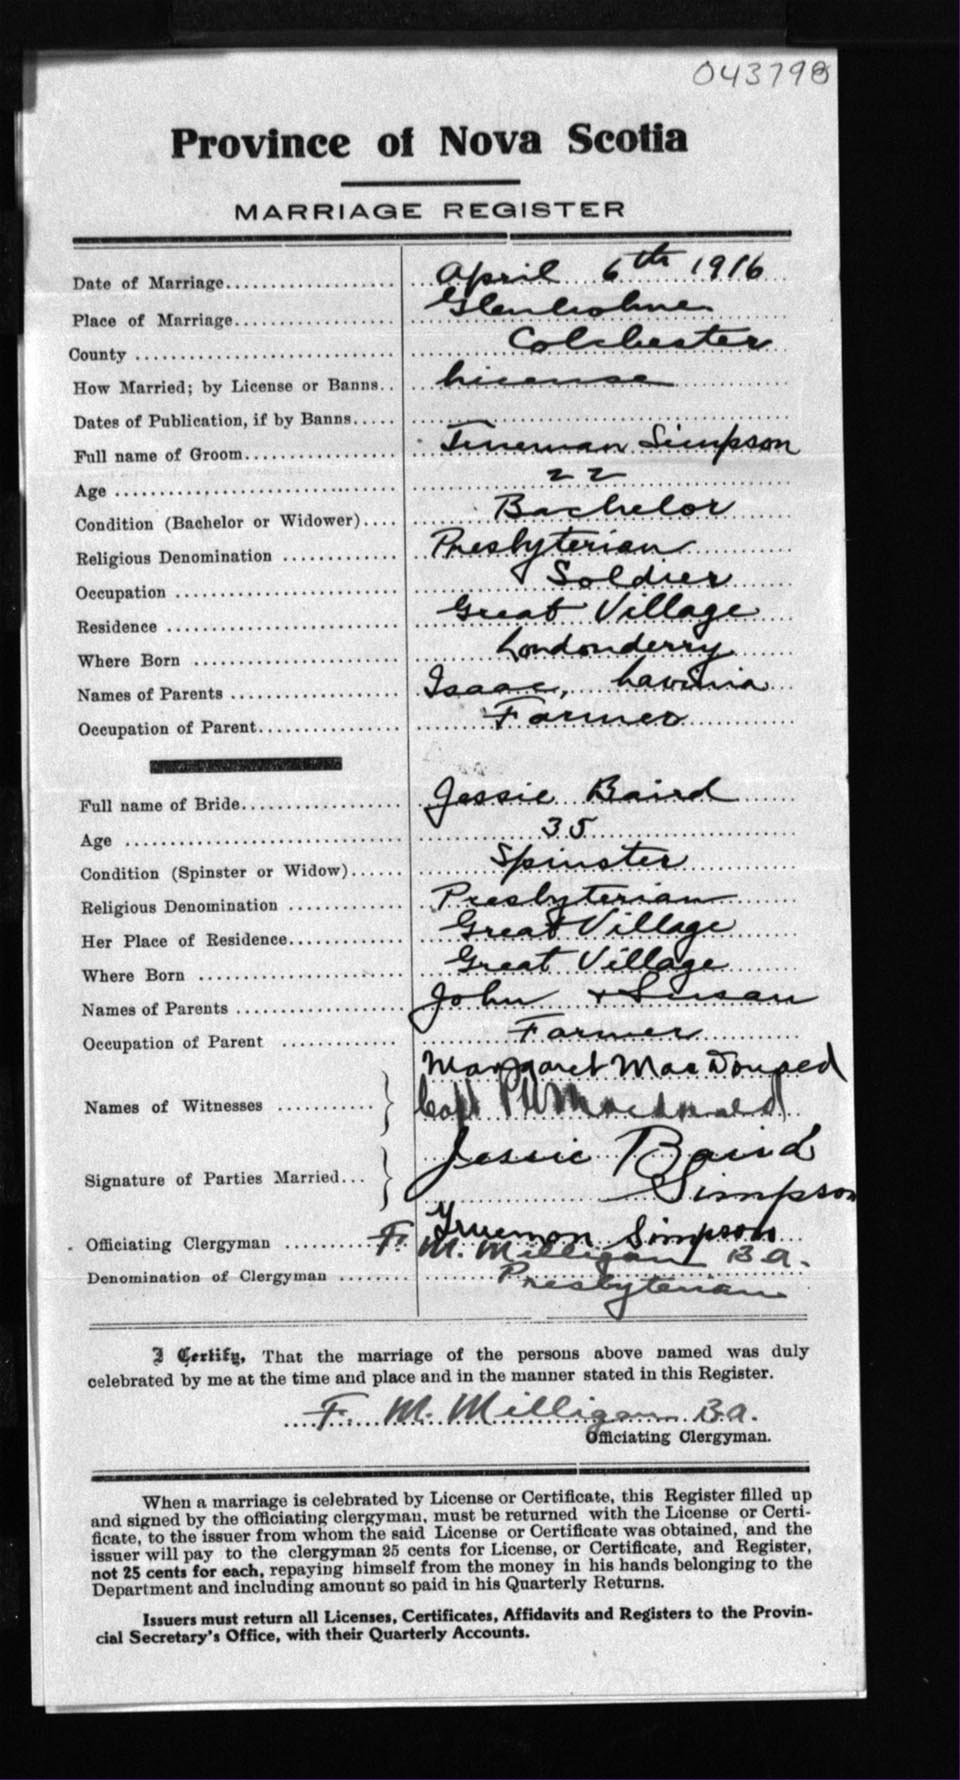 043798
Province of Nova Scotia
MARRIAGE REGISTER
Date of Marriage.................... April 6th 1916
Place of Marriage................... Glenholme
County ............................ Colchester
How Married; by License or Banns.. License
Dates of Publication, if by Banns.....
Full name of Groom.................. Trueman Simpson
Age ................................ 22
Condition (Bachelor or Widower).... Bachelor
Religious Denomination ............. Presbyterian
Occupation ......................... Soldier
Residence .......................... Great Village
Where Born ......................... Londonderry
Names of Parents ................... Isaac, Lavinia
Occupation of Parent................ Farmer
Full name of Bride.................. Jessie Baird
Age ................................ 35
Condition (Spinster or Widow)...... Spinster
Religious Denomination ............. Presbyterian
Her Place of Residence............. Great Village
Where Born ......................... Great Village
Names of Parents ................... John + Susan
Occupation of Parent .............. Farmer
Margaret MacDonald
Names of Witnesses ........... } Capt Macdonald
Signature of Parties Married... } Jessie Baird
Simpson
Trueman Simpson
Officiating Clergyman .......... F. M. Milligan B.A.
Denomination of Clergyman ........ Presbyterian
I Certify, That the marriage of the persons above named was duly
celebrated by me at the time and place and in the manner stated in this Register.
F. M. Milligan B.A.
Officiating Clergyman.
When a marriage is celebrated by License or Certificate, this Register filled up
and signed by the officiating clergyman, must be returned with the License or Certi-
ficate, to the issuer from whom the said License or Certificate was obtained, and the
issuer will pay to the clergyman 25 cents for License, or Certificate, and Register,
not 25 cents for each, repaying himself from the money in his hands belonging to the
Department and including amount so paid in his Quarterly Returns.
Issuers must return all Licenses, Certificates, Affidavits and Registers to the Provin-
cial Secretary's Office, with their Quarterly Accounts.